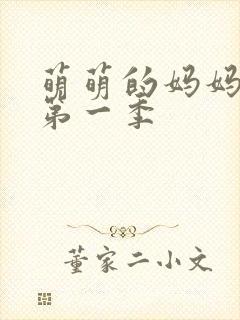 萌萌的妈妈
第一季
董家二小文